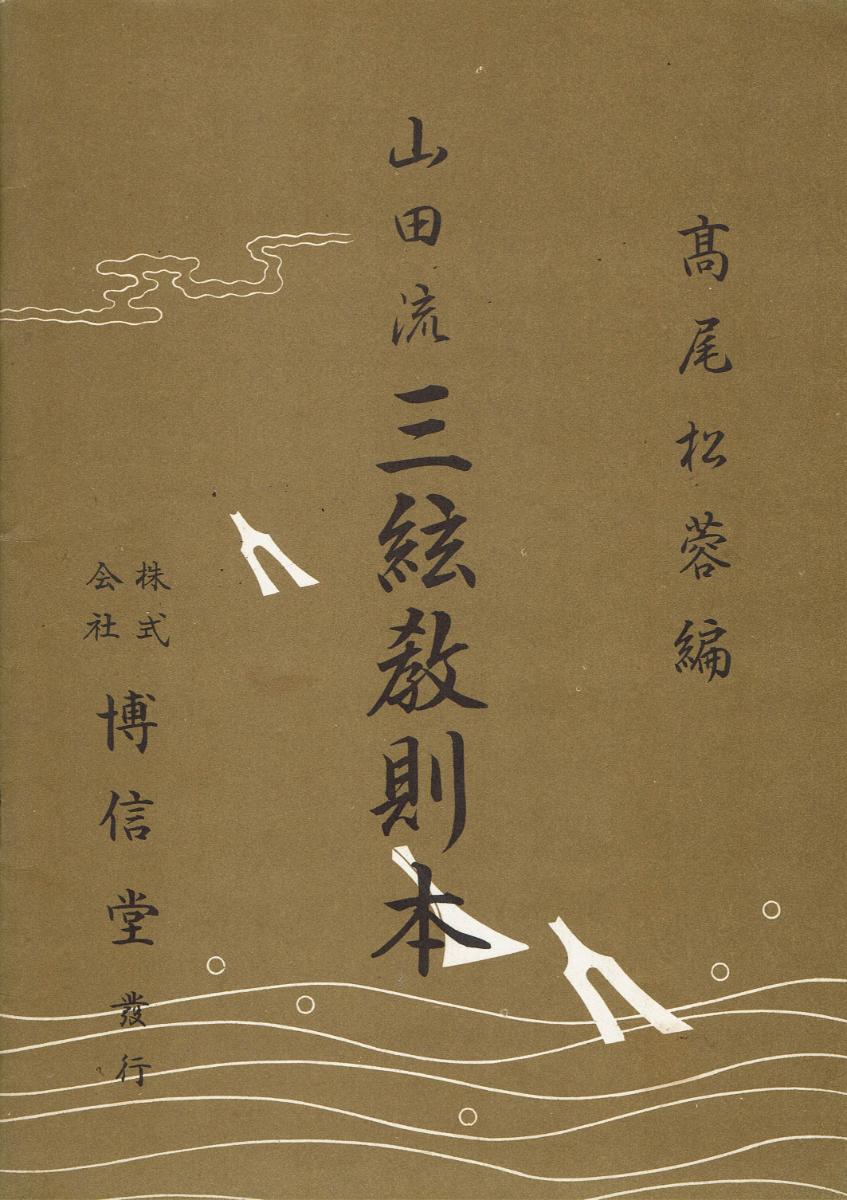 髙尾松蓉編
山田流三絃教則本
株式会社博信堂發行